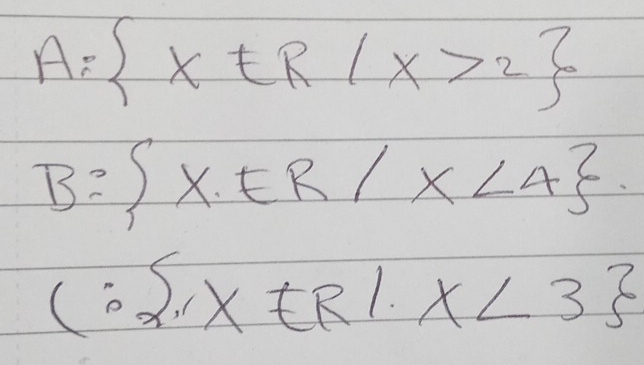 A:{ X ∈ R / X > 2 }
B:{ X. ∈ R / X < 4 }.
C:{ X ∈ R /. X < 3 }